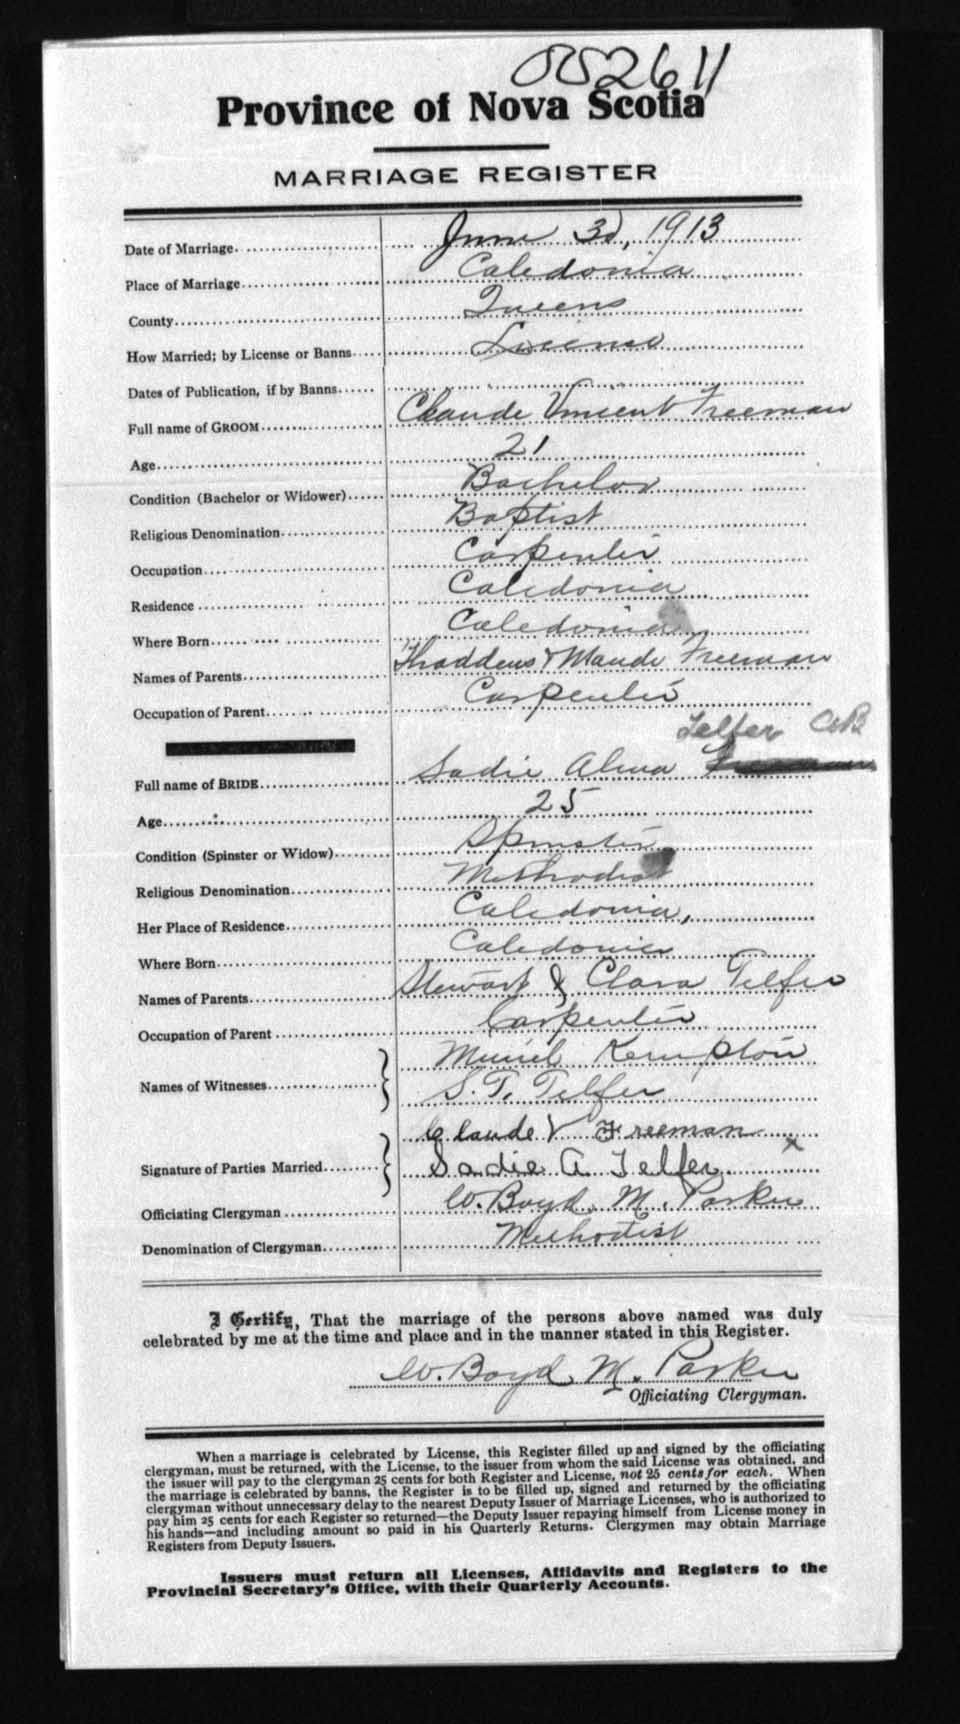 002611
Province of Nova Scotia
MARRIAGE REGISTER
Date of Marriage June 3d, 1913
Place of Marriage Caledonia
County Queens
How Married; by License or Banns License
Dates of Publication, if by Banns
Full name of GROOM Claude Vincent Freeman
Age 21
Condition (Bachelor or Widower) Bachelor
Religious Denomination Baptist
Occupation Carpenter
Residence Caledonia
Where Born Caledonia
Names of Parents Thaddeus & Maude Freeman
Occupation of Parent Carpenter
Telfer
Full name of BRIDE Sadie Alma Freeman
Age 25
Condition (Spinster or Widow) Spinster
Religious Denomination Methodist
Her Place of Residence Caledonia,
Where Born Caledonia
Names of Parents Stewart & Clara Telfer
Occupation of Parent Carpenter
Names of Witnesses Muriel Kempton
S. T. Telfer
Signature of Parties Married Claude V Freeman
Sadie A. Telfer. x
Officiating Clergyman W. Boyd. M. Parker
Denomination of Clergyman Methodist
I Certify, That the marriage of the persons above named was duly
celebrated by me at the time and place and in the manner stated in this Register.
W. Boyd. M. Parker
Officiating Clergyman.
When a marriage is celebrated by License, this Register filled up and signed by the officiating
clergyman, must be returned, with the License, to the issuer from whom the said License was obtained, and
the issuer will pay to the clergyman 25 cents for both Register and License, not 25 cents for each. When
the marriage is celebrated by banns, the Register is to be filled up, signed and returned by the officiating
clergyman without unnecessary delay to the nearest Deputy Issuer of Marriage Licenses, who is authorized to
pay him 25 cents for each Register so returned—the Deputy Issuer repaying himself from License money in
his hands—and including amount so paid in his Quarterly Returns. Clergymen may obtain Marriage
Registers from Deputy Issuers.
Issuers must return all Licenses, Affidavits and Registers to the
Provincial Secretary's Office, with their Quarterly Accounts.